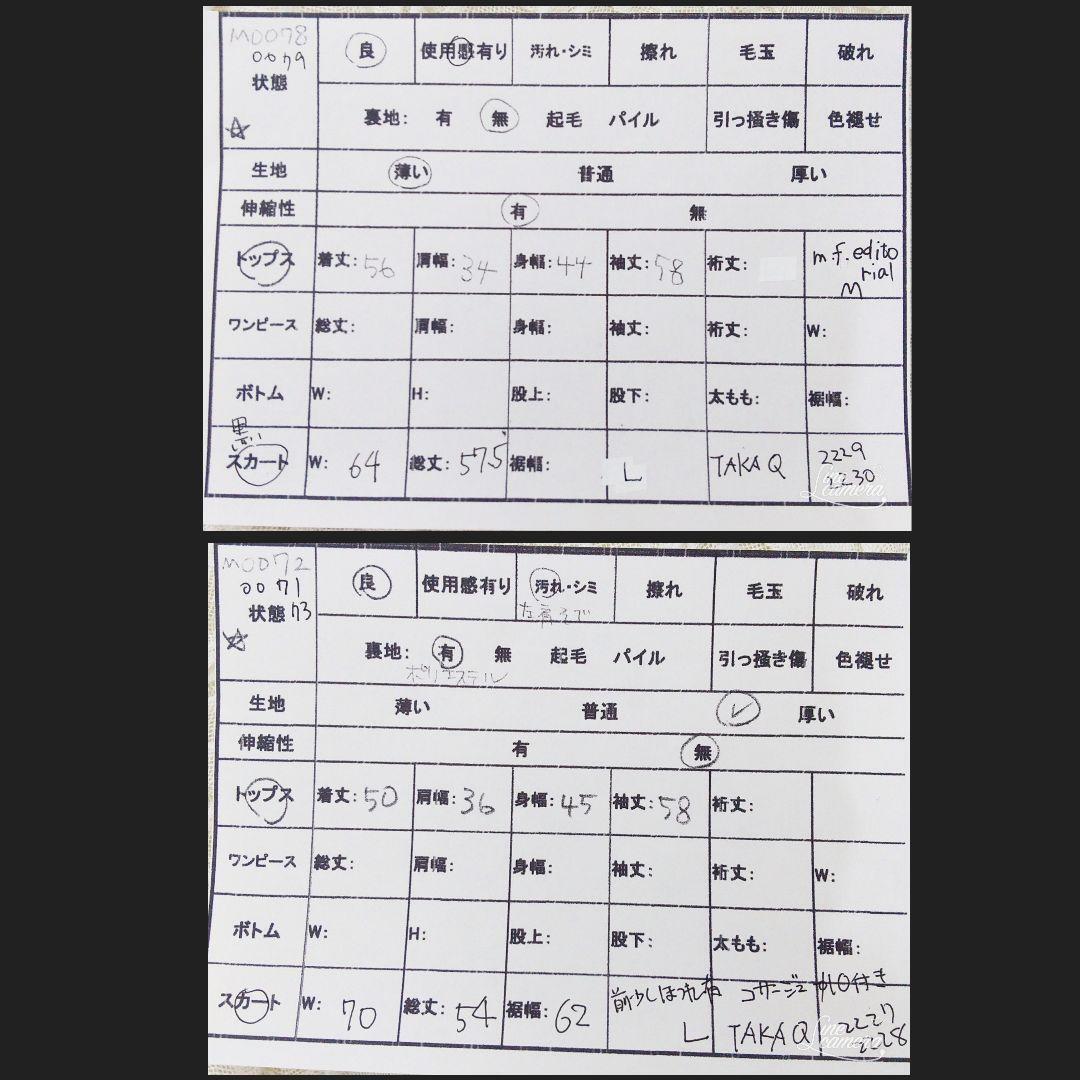 M0078
0079
状態
良 使用感有り 汚れ・シミ 擦れ 毛玉 破れ
☆
裏地: 有 無 起毛 パイル 引っ掻き傷 色褪せ
生地 薄い 普通 厚い
伸縮性 有 無
トップス 着丈: 56 肩幅: 34 身幅: 44 袖丈: 58 裄丈: m.f.edito
rial
M
ワンピース 総丈: 肩幅: 身幅: 袖丈: 裄丈: W:
ボトム W: H: 股上: 股下: 太もも: 裾幅:
黒
スカート W: 64 総丈: 57.5 裾幅: L TAKA Q 2229
2230
Line
camera
M0072
0071
状態 73
良 使用感有り 汚れ・シミ 擦れ 毛玉 破れ
左肩そで
☆
裏地: 有 無 起毛 パイル 引っ掻き傷 色褪せ
ポリエステル
生地 薄い 普通 ✓ 厚い
伸縮性 有 無
トップス 着丈: 50 肩幅: 36 身幅: 45 袖丈: 58 裄丈:
ワンピース 総丈: 肩幅: 身幅: 袖丈: 裄丈: W:
ボトム W: H: 股上: 股下: 太もも: 裾幅:
コサージュ 付き
スカート W: 70 総丈: 54 裾幅: 62 L TAKA Q 2227
2228
Line
camera